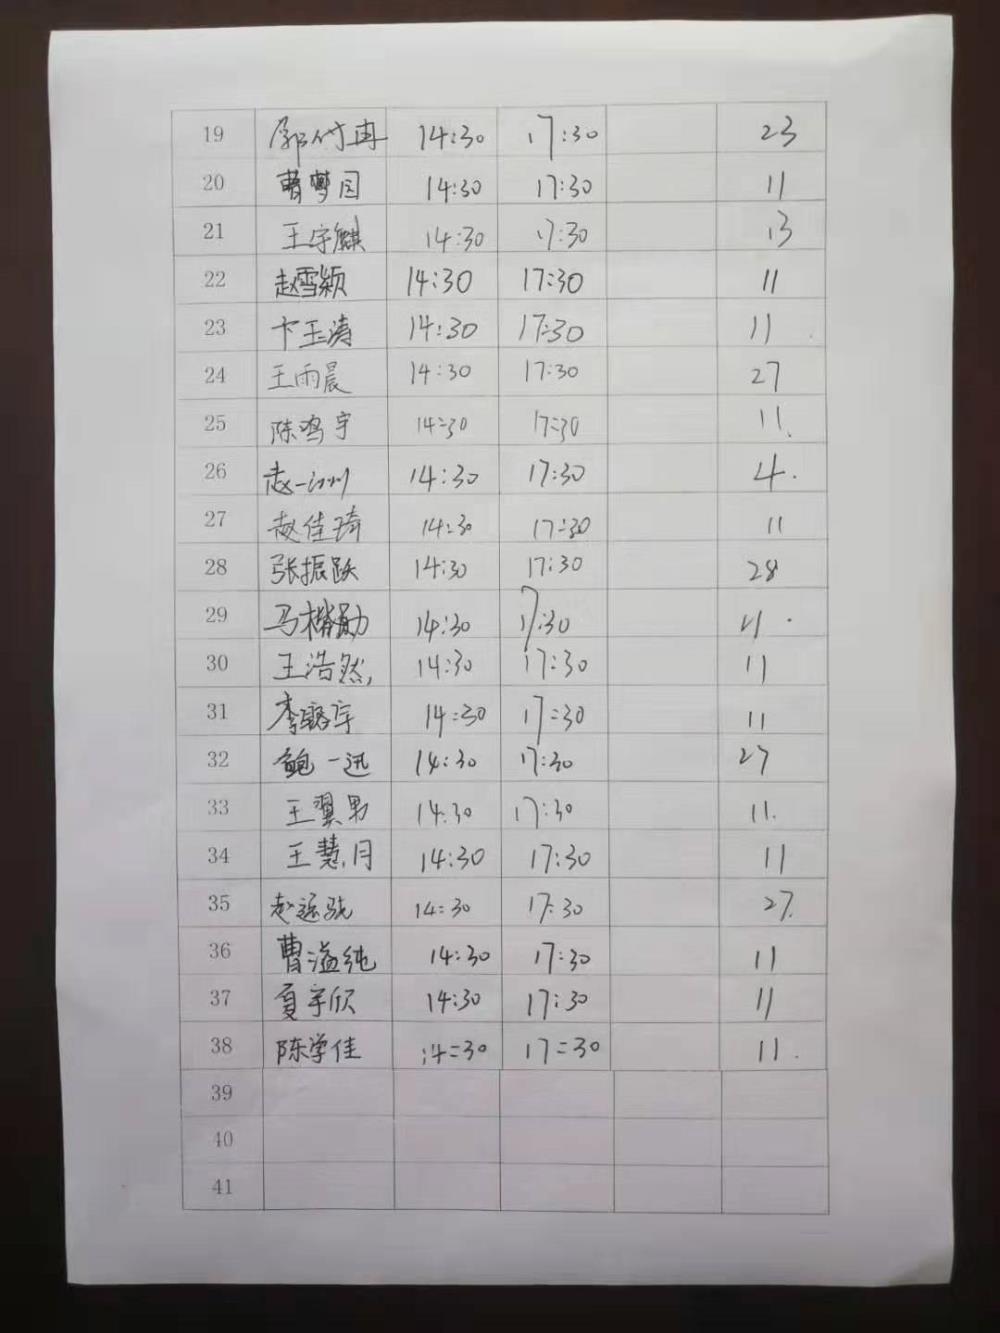 19 郭竹冉 14:30 17:30 23
20 曹梦园 14:30 17:30 11
21 王宇麒 14:30 17:30 13
22 赵雪颖 14:30 17:30 11
23 卞玉涛 14:30 17:30 11
24 王雨晨 14:30 17:30 27
25 陈鸿宇 14:30 17:30 11.
26 赵一 14:30 17:30 4.
27 赵佳琦 14:30 17:30 11
28 张振跃 14:30 17:30 28
29 马楷勋 14:30 17:30
30 王浩然, 14:30 17:30 11
31 李 宇 14:30 17:30 11
32 鲍一迅 14:30 17:30 27
33 王翼男 14:30 17:30 11.
34 王慧月 14:30 17:30 11
35 赵远 14:30 17:30 27.
36 曹溢纯 14:30 17:30 11
37 夏宇欣 14:30 17:30 11
38 陈学佳 14:30 17:30 11.
39
40
41